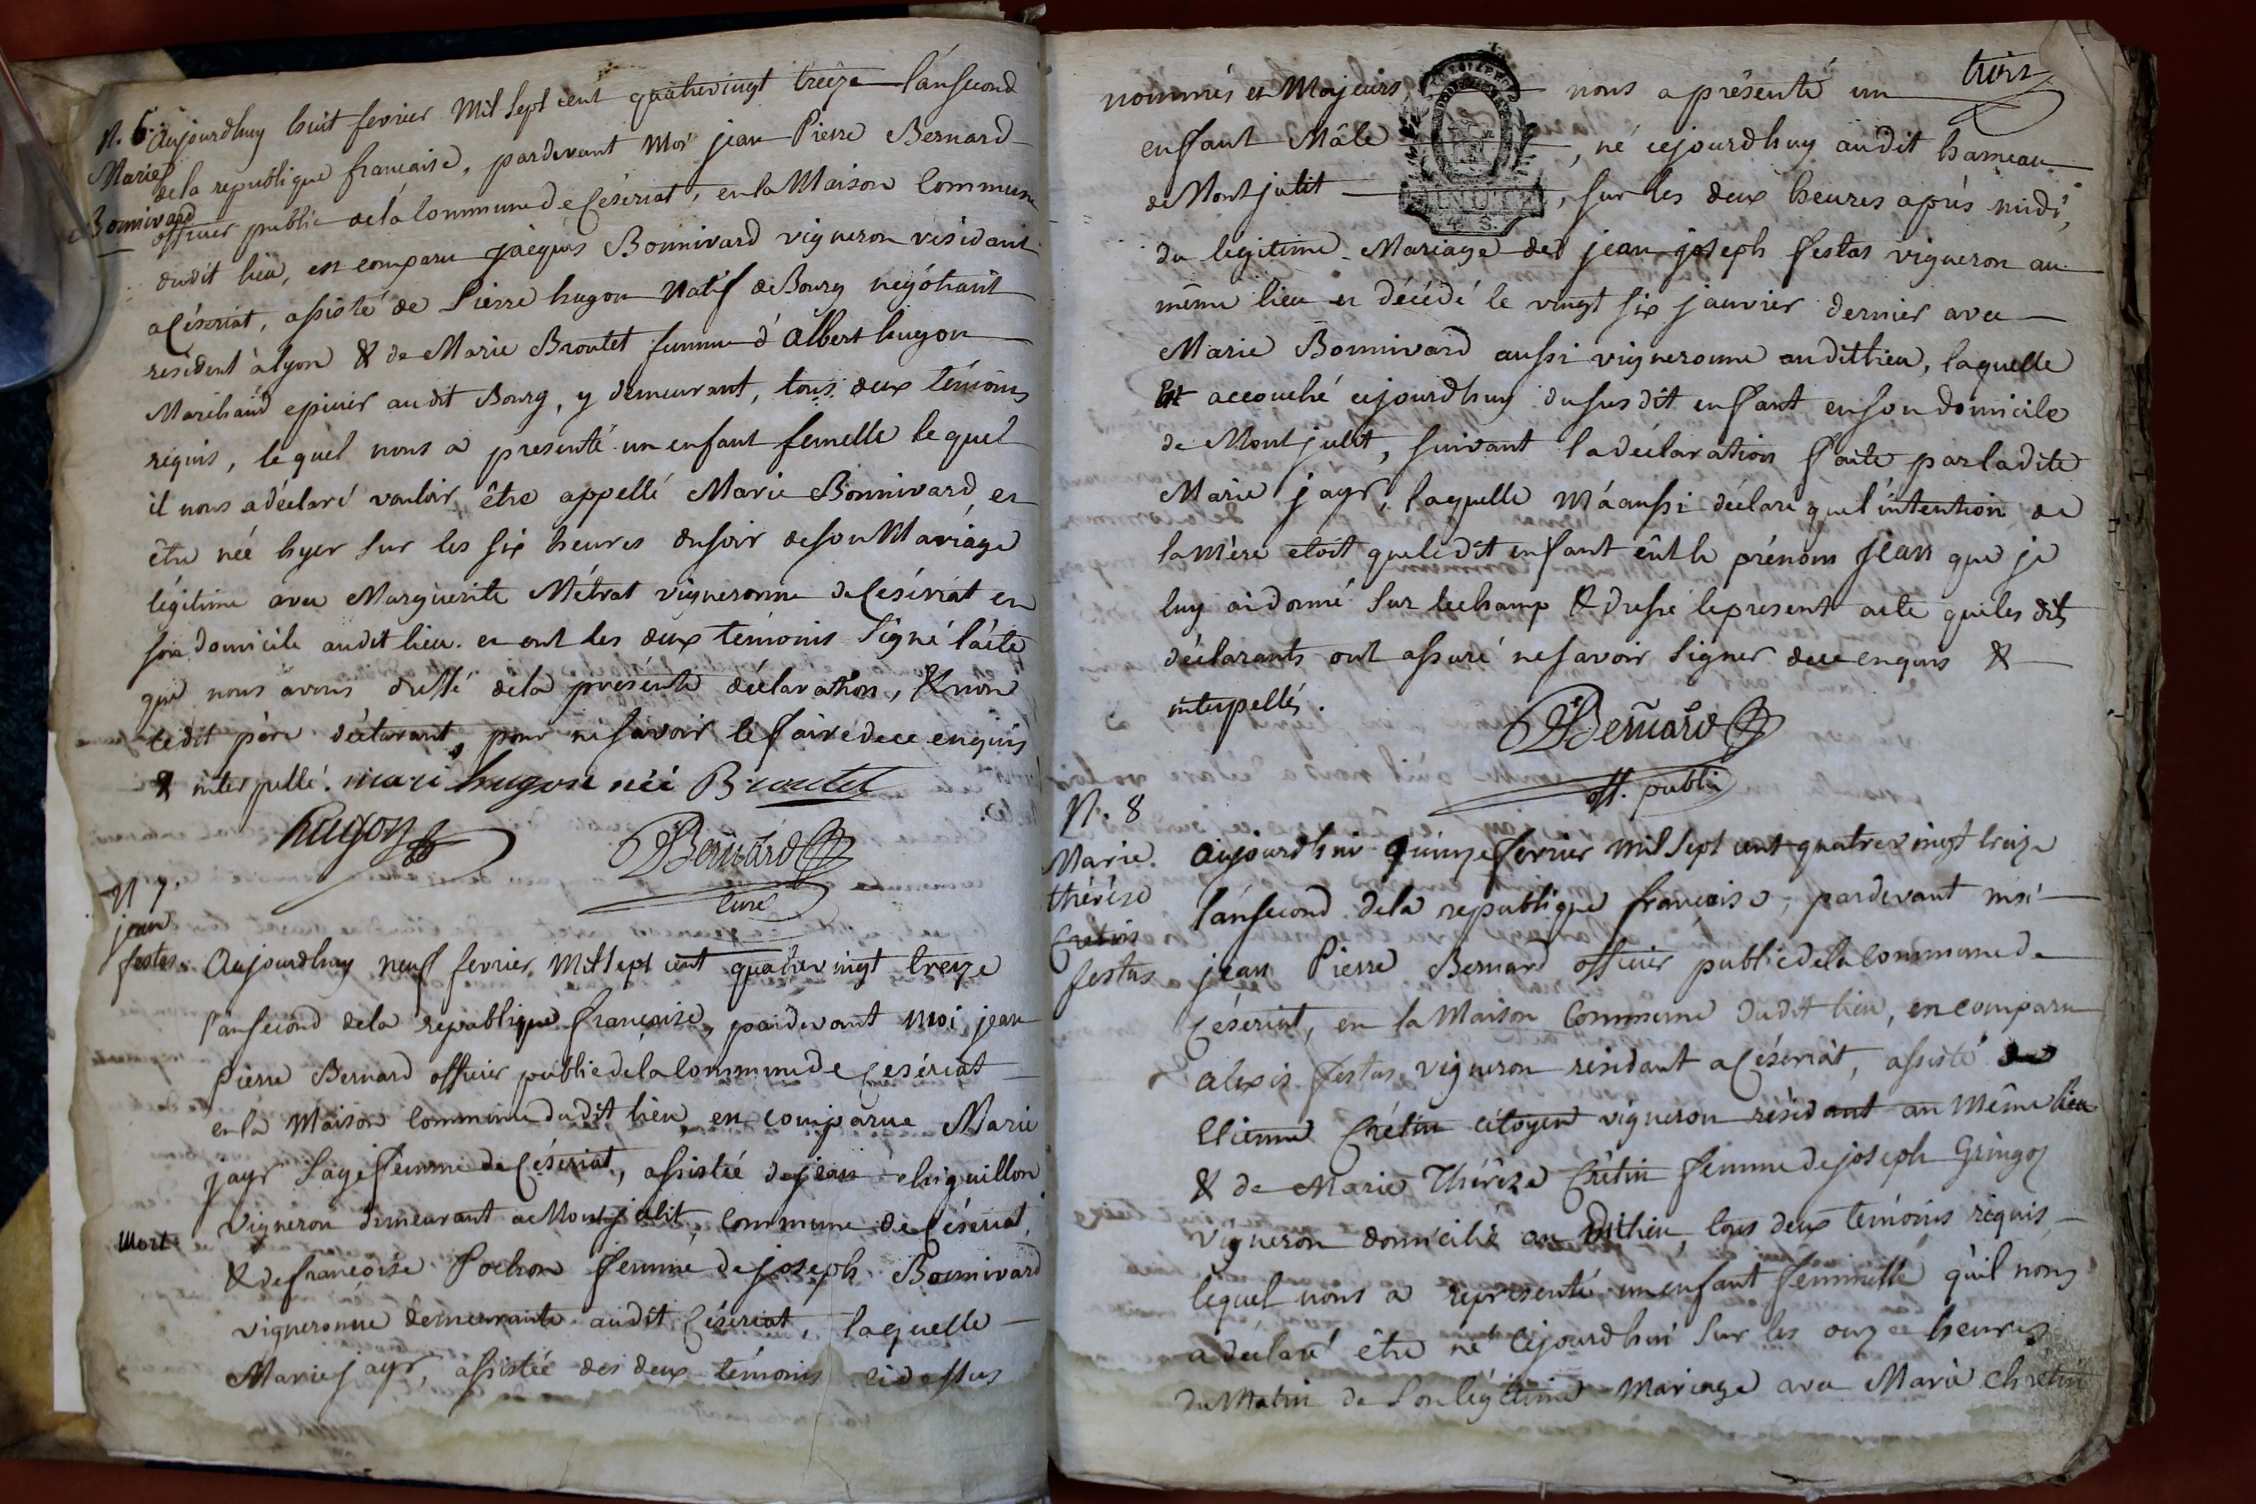 N. 6.
Marie
Bonnivard
Aujourdhuy huit fevrier mil sept cent quatrevingt treize l'an second
de la republique francaise, pardevant moi jean Pierre Bernard
officier public de la Commune de Céseriat, en la Maison Commune
dudit lieu, est comparu jacques Bonnivard vigneron residant
a Céseriat, assisté de Pierre hugon Natif de Bourg negotiant
resident à lyon & de Marie Broutet femme d'Albert hugon
Marchand epicier audit Bourg, y demeurant, tous deux témoins
requis, lequel nous a presenté un enfant femelle lequel
il nous a déclaré vouloir être appellé Marie Bonnivard, et
être née hyer sur les six heures du soir de son Mariage
légitime avec Marguerite Métrat vigneronne de Céseriat en
son domicile audit lieu. et ont les deux témoins signé l'acte
que nous avons dressé de la présente déclaration, & non
ledit père déclarant, pour ne savoir le faire de ce enquis
& interpellé. marie hugon née Broutet
hugon
Bernard
curé
N 7.
jean
festas.
Aujourdhuy neuf fevrier mil sept cent quatrevingt treize
l'an second de la republique francaise, pardevant moi jean
Pierre Bernard officier public de la Commune de Ceseriat
en la Maison Commune dudit lieu, est comparue Marie
jayr sage femme de Céseriat, assistée de jean chiguillon
vigneron demeurant a Montjulit, Commune de Céseriat,
Mort
& de francoise Pochon femme de joseph Bonnivard
vigneronne demeurante audit Céseriat, laquelle
Marie jayr, assistée des deux témoins ci dessus
trois
nommés et Majeurs nous a présenté un
enfant Mâle, né cejourdhuy audit hameau
de Montjulit, sur les deux heures après midi,
MINUTE
du legitime Mariage de jean joseph festas vigneron au
même lieu et décédé le vingt six janvier dernier avec
Marie Bonnivard aussi vigneronne audit lieu, laquelle
est accouché cejourdhuy du susdit enfant en son domicile
de Montjulit, suivant la déclaration faite par ladite
Marie jayr, laquelle m'a aussi déclaré que l'intention de
la mère etoit que ledit enfant eût le prénom jean que je
luy ai donné sur lechamp & dressé le présent acte que les dits
déclarants ont assuré ne savoir signer de ce enquis &
interpellés.
Bernard
off. public
N. 8
Marie.
thérése
Cretin
festas
Aujourdhui quinze fevrier mil sept cent quatrevingt treize
l'an second de la republique francaise, pardevant moi
jean Pierre Bernard officier public de la commune de
Céseriat, en la Maison Commune dudit lieu, est comparu
alexis festas vigneron residant a Céseriat, assisté de
Etienne Crétin citoyen vigneron résidant au même lieu
& de Marie Thérèze Crétin femme de joseph Gringoz
vigneron domicilié au dit lieu, tous deux témoins requis
lequel nous a représenté un enfant femmelle qu'il nous
a déclaré être né cejourdhui sur les onze heures
du Matin de son légitime Mariage avec Marie chretin